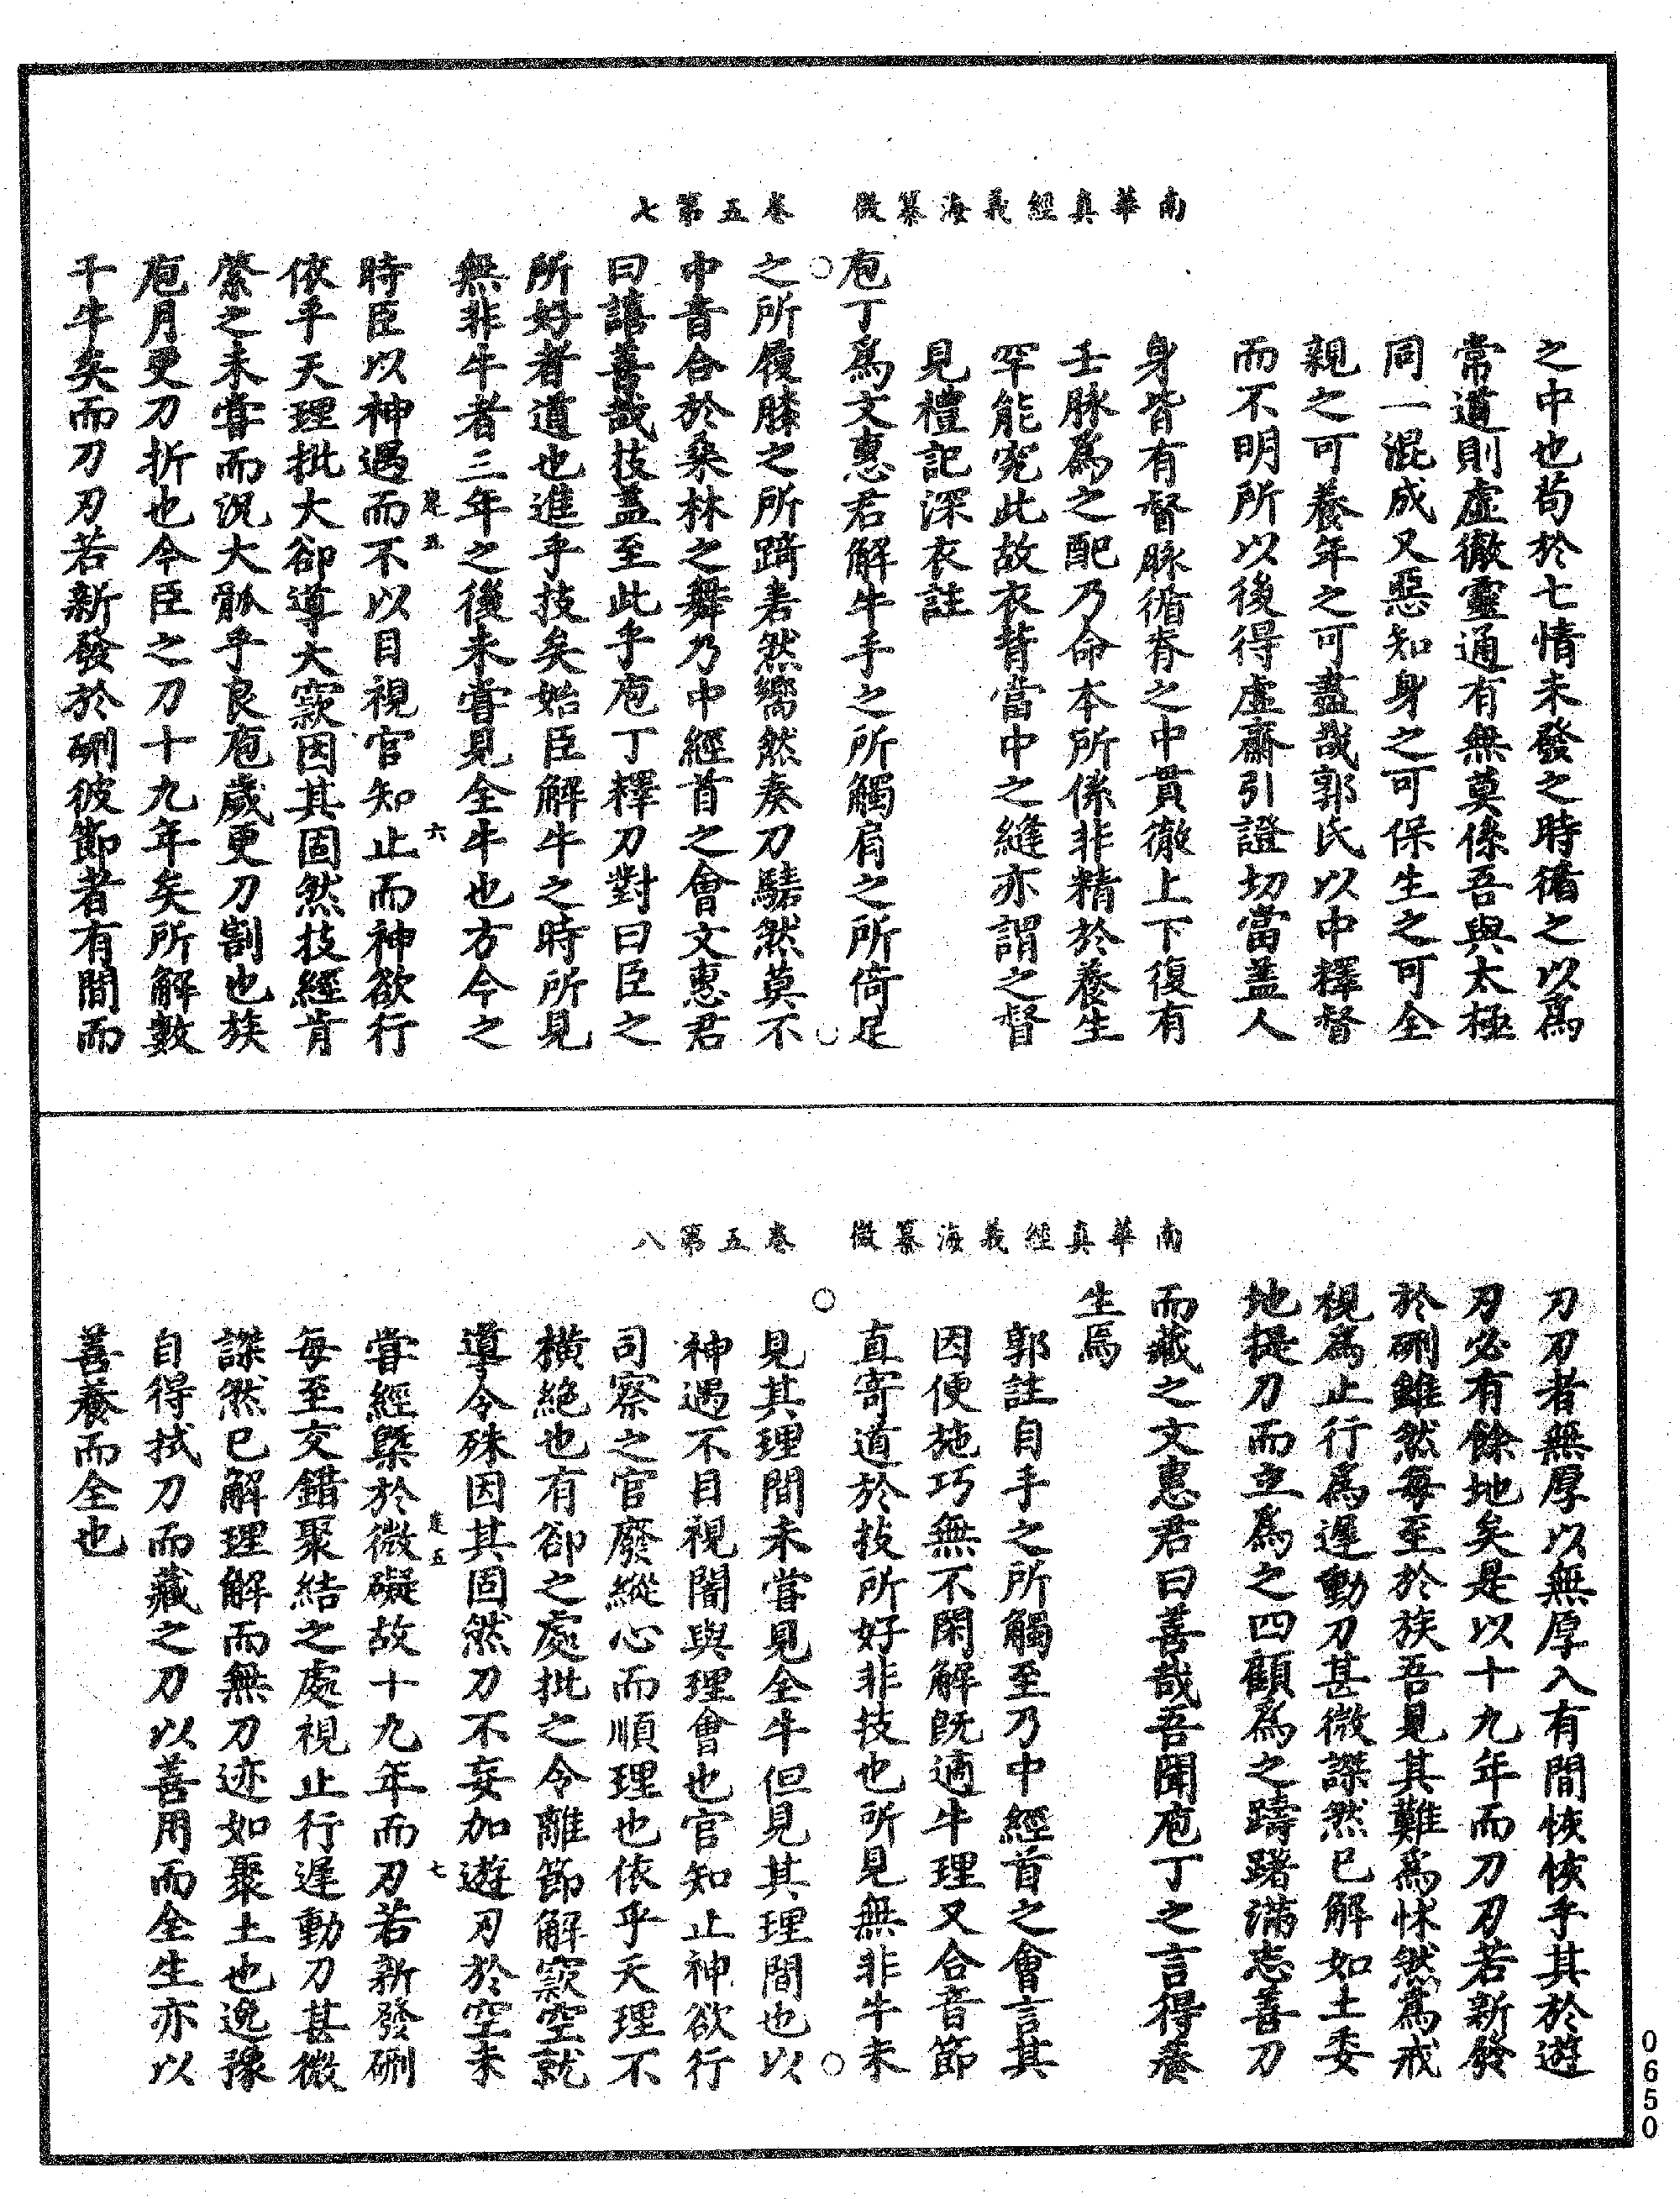 南華真經義海纂微　卷五第七
之中也苟於七情未發之時循之以為
常道則虛徹靈通有無莫係吾與太極
同一混成又惡知身之可保生之可全
親之可養年之可盡哉郭氏以中釋督
而不明所以後得虛齋引證切當蓋人
身皆有督脉循脊之中貫徹上下復有
壬脉為之配乃命本所係非精於養生
罕能究此故衣背當中之縫亦謂之督
見禮記深衣註
庖丁為文惠君解牛手之所觸肩之所倚足
之所履膝之所踦砉然嚮然奏刀騞然莫不
中音合於桑林之舞乃中經首之會文惠君
曰譆善哉技蓋至此乎庖丁釋刀對曰臣之
所好者道也進乎技矣始臣解牛之時所見
無非牛者三年之後未嘗見全牛也方今之
時臣以神遇而不以目視官知止而神欲行
依乎天理批大卻導大窾因其固然技經肯
綮之未嘗而況大軱乎良庖歲更刀割也族
庖月更刀折也今臣之刀十九年矣所解數
千牛矣而刀刃若新發於硎彼節者有間而
南華真經義海纂微　卷五第八
刀刃者無厚以無厚入有間恢恢乎其於遊
刃必有餘地矣是以十九年而刀刃若新發
於硎雖然每至於族吾見其難為怵然為戒
視為止行為遲動刀甚微謋然已解如土委
地提刀而立為之四顧為之躊躇滿志善刀
而藏之文惠君曰善哉吾聞庖丁之言得養
生焉
郭註自手之所觸至乃中經首之會言其
因便施巧無不閑解既適牛理又合音節
直寄道於技所好非技也所見無非牛未
見其理間未嘗見全牛但見其理間也以
神遇不目視闇與理會也官知止神欲行
司察之官廢縱心而順理也依乎天理不
橫絕也有卻之處批之令離節解窾空就
導令殊因其固然刀不妄加遊刃於空未
嘗經槩於微礙故十九年而刃若新發硎
每至交錯聚結之處視止行遲動刀甚微
謋然已解理解而無刀迹如聚土也逸豫
自得拭刀而藏之刀以善用而全生亦以
善養而全也
0650